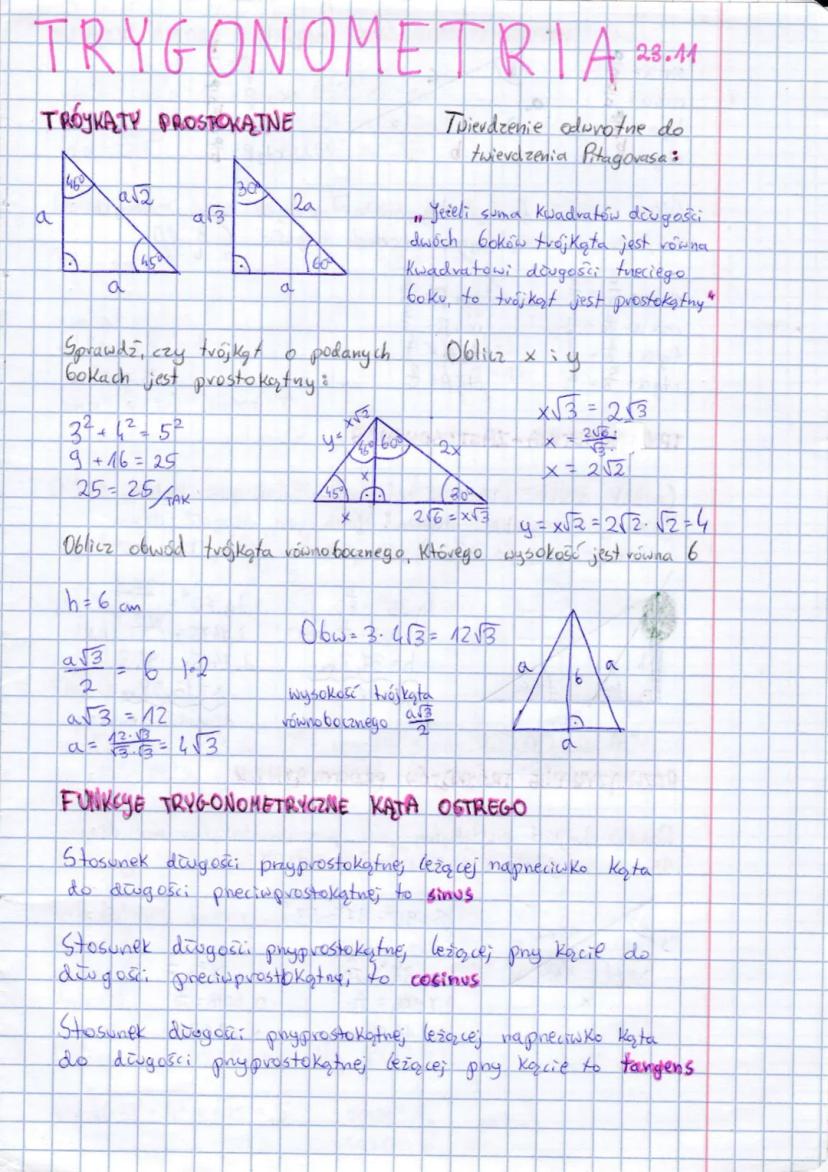 TRYGONOMETRIA 23.11
TRÓJKĄTY PROSTOKĄTNE
45° a√2 a 45° a
30° 2a a√3 60° a
Twierdzenie odwrotne do
twierdzenia Pitagorasa:
„Jeżeli suma kwadratów długości
dwóch boków trójkąta jest równa
kwadratowi długości trzeciego
boku, to trójkąt jest prostokątny"
Sprawdź, czy trójkąt o podanych
bokach jest prostokątny:
3² + 4² = 5²
9 + 16 = 25
25 = 25 /TAK
Oblicz x i y
y = x√2
60° 2x
x
45° 30°
x 2√6 = x√3
x√3 = 2√3
x = 2√6 / √3
x = 2√2
y = x√2 = 2√2 · √2 = 4
Oblicz obwód trójkąta równobocznego, którego wysokość jest równa 6
h = 6 cm
a√3/2 = 6 |·2
a√3 = 12
a = 12·√3/√3·√3 = 4√3
Obw = 3 · 4√3 = 12√3
wysokość trójkąta
równobocznego a√3/2
a 6 a
a
FUNKCJE TRYGONOMETRYCZNE KĄTA OSTREGO
Stosunek długości przyprostokątnej leżącej naprzeciwko kąta
do długości przeciwprostokątnej to sinus
Stosunek długości przyprostokątnej leżącej przy kącie do
długości przeciwprostokątnej to cosinus
Stosunek długości przyprostokątnej leżącej naprzeciwko kąta
do długości przyprostokątnej leżącej przy kącie to tangens